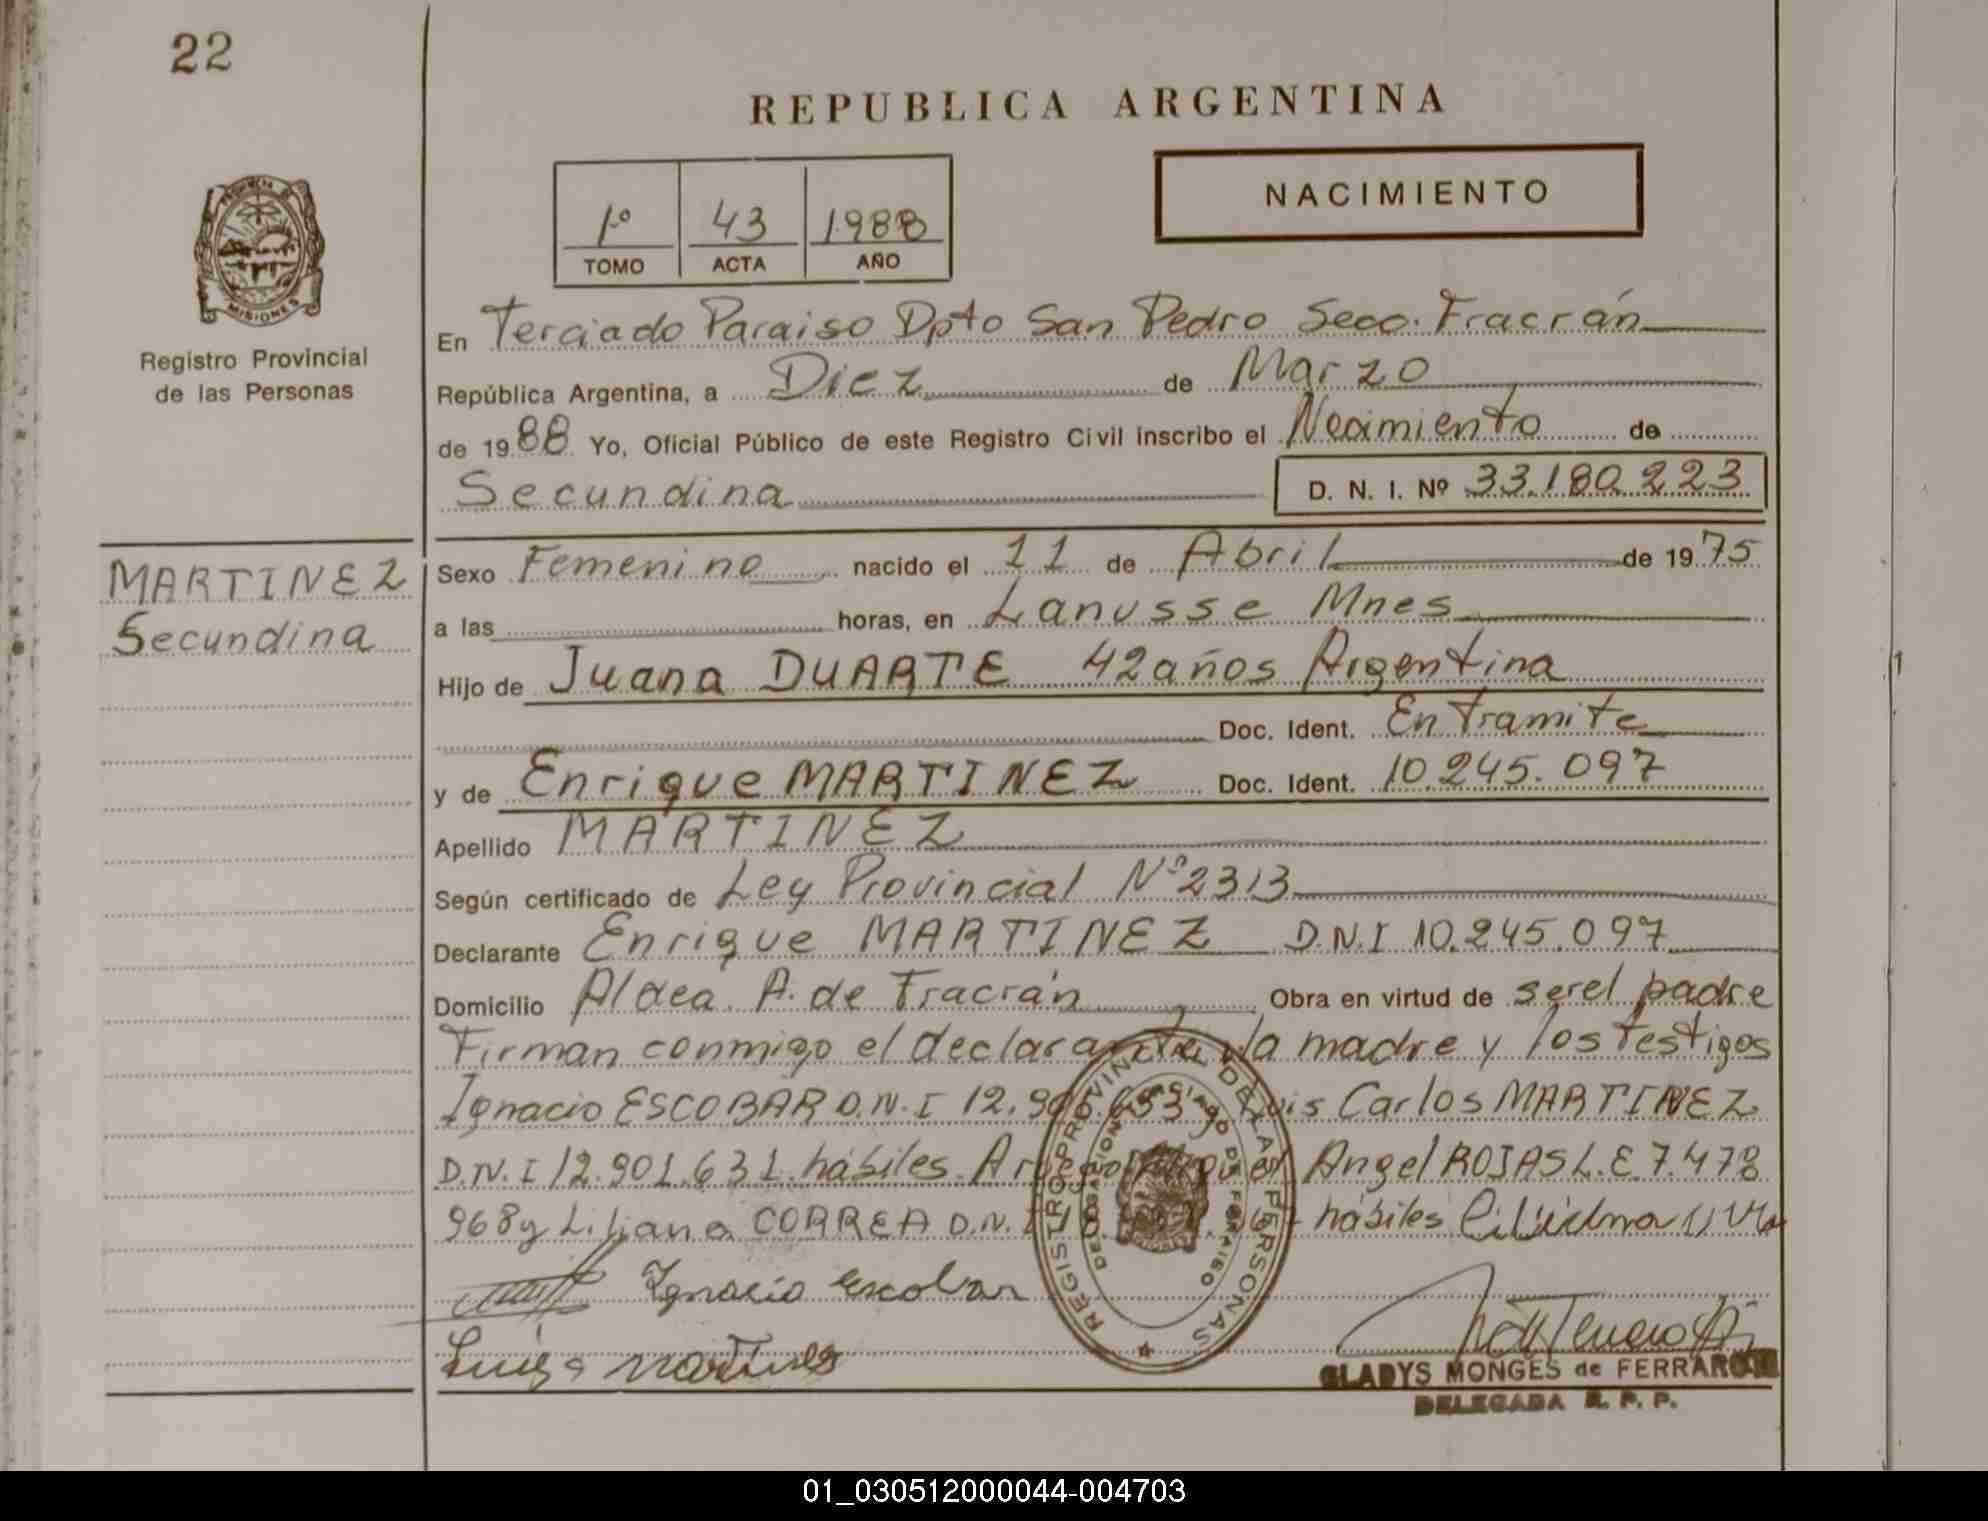 22
REPUBLICA ARGENTINA
1º 43 1988
TOMO ACTA AÑO
NACIMIENTO
MISIONES
Registro Provincial
de las Personas
En Terciado Paraiso Dpto San Pedro Secc. Fracrán
República Argentina, a Diez de Marzo
de 1988 Yo, Oficial Público de este Registro Civil inscribo el Nacimiento de
Secundina D. N. I. Nº 33.180.223
MARTINEZ
Secundina
Sexo Femenino nacido el 11 de Abril de 1975
a las horas, en Lanusse Mnes
Hijo de Juana DUARTE 42 años Argentina
Doc. Ident. En Tramite
y de Enrique MARTINEZ Doc. Ident. 10.245.097
Apellido MARTINEZ
Según certificado de Ley Provincial Nº 2313
Declarante Enrique MARTINEZ D.N.I 10.245.097
Domicilio Aldea A. de Fracrán Obra en virtud de ser el padre
Firman conmigo el declarante, la madre y los testigos
Ignacio ESCOBAR D.N.I 12. y Luis Carlos MARTINEZ
D.N.I 12.901.631 hábiles. A ruego Angel ROJAS L.E 7.478
968 y Liliana CORREA D.N.I hábiles
Ignacio escobar
REGISTRO PROVINCIAL DE LAS PERSONAS
DELEGACION
GLADYS MONGES de FERRARO
DELEGADA R. P. P.
01_030512000044-004703